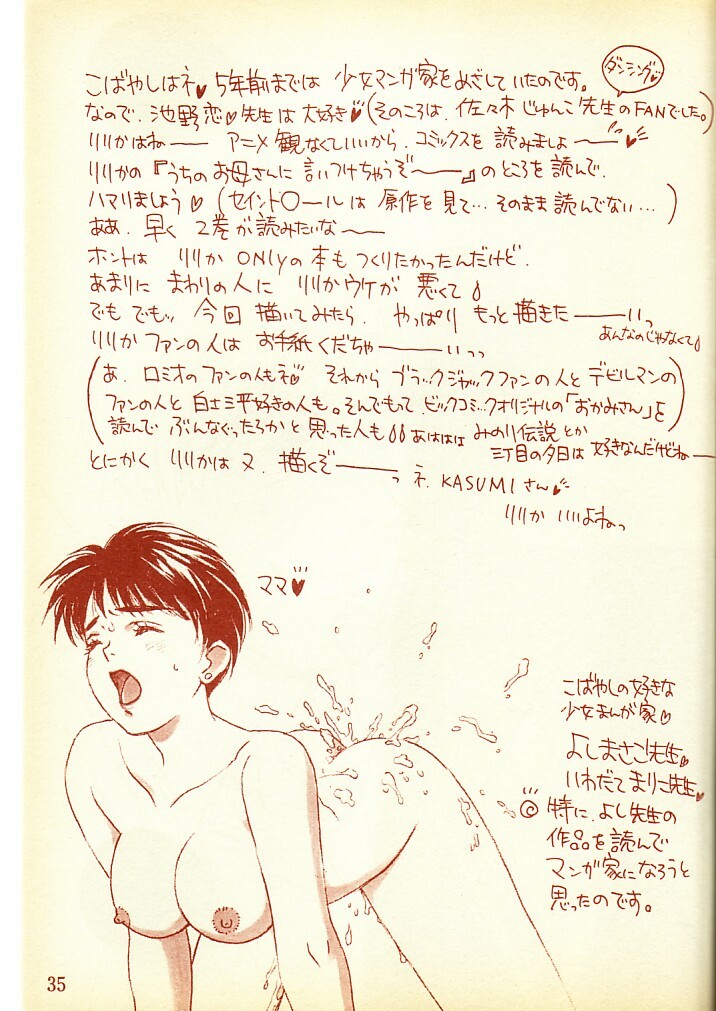 こばやしはネ♥5年前までは 少女マンガ家をめざしていたのです。
ダンシング♥
なので、池野恋♡先生は大好き♥(そのころは、佐々木じゅんこ先生のFANでした。)
リリかはねー アニメ観なくていいから、コミックスを読みましょー♥
リリかの『うちのお母さんに言いつけちゃうぞー』のところを読んで、
ハマりましょう♡(セイント〇ールは原作を見て…そのまま読んでない…)
ああ、早く2巻が読みたいなー
ホントは リリか ONLyの本もつくりたかったんだけど、
あまりに まわりの人に リリかウケが 悪くて
でもでもッ 今回描いてみたら、やっぱりもっと描きたーいっ
あんなのじゃなくて
リリか ファンの人は お手紙くだちゃーいっっ
(あ、ロミオのファンの人もネ♡ それから ブラックジャックファンの人とデビルマンの
ファンの人と 白土三平好きの人も。そんでもって ビックコミックオリジナルの「おかみさん」を
読んで ぶんなぐったろかと思った人も あははは みのり伝説とか
三丁目の夕日は 好きなんだけどねー)
とにかく リリかは又、描くぞーっ ネ、KASUMIさん♥
リリか いいよねっ
ママ♥
こばやしの好きな
少女まんが家♡
よしまさこ先生♥
いわだてまりこ先生♥
◎特に、よし先生の
作品を読んで
マンガ家になろうと
思ったのです。
35